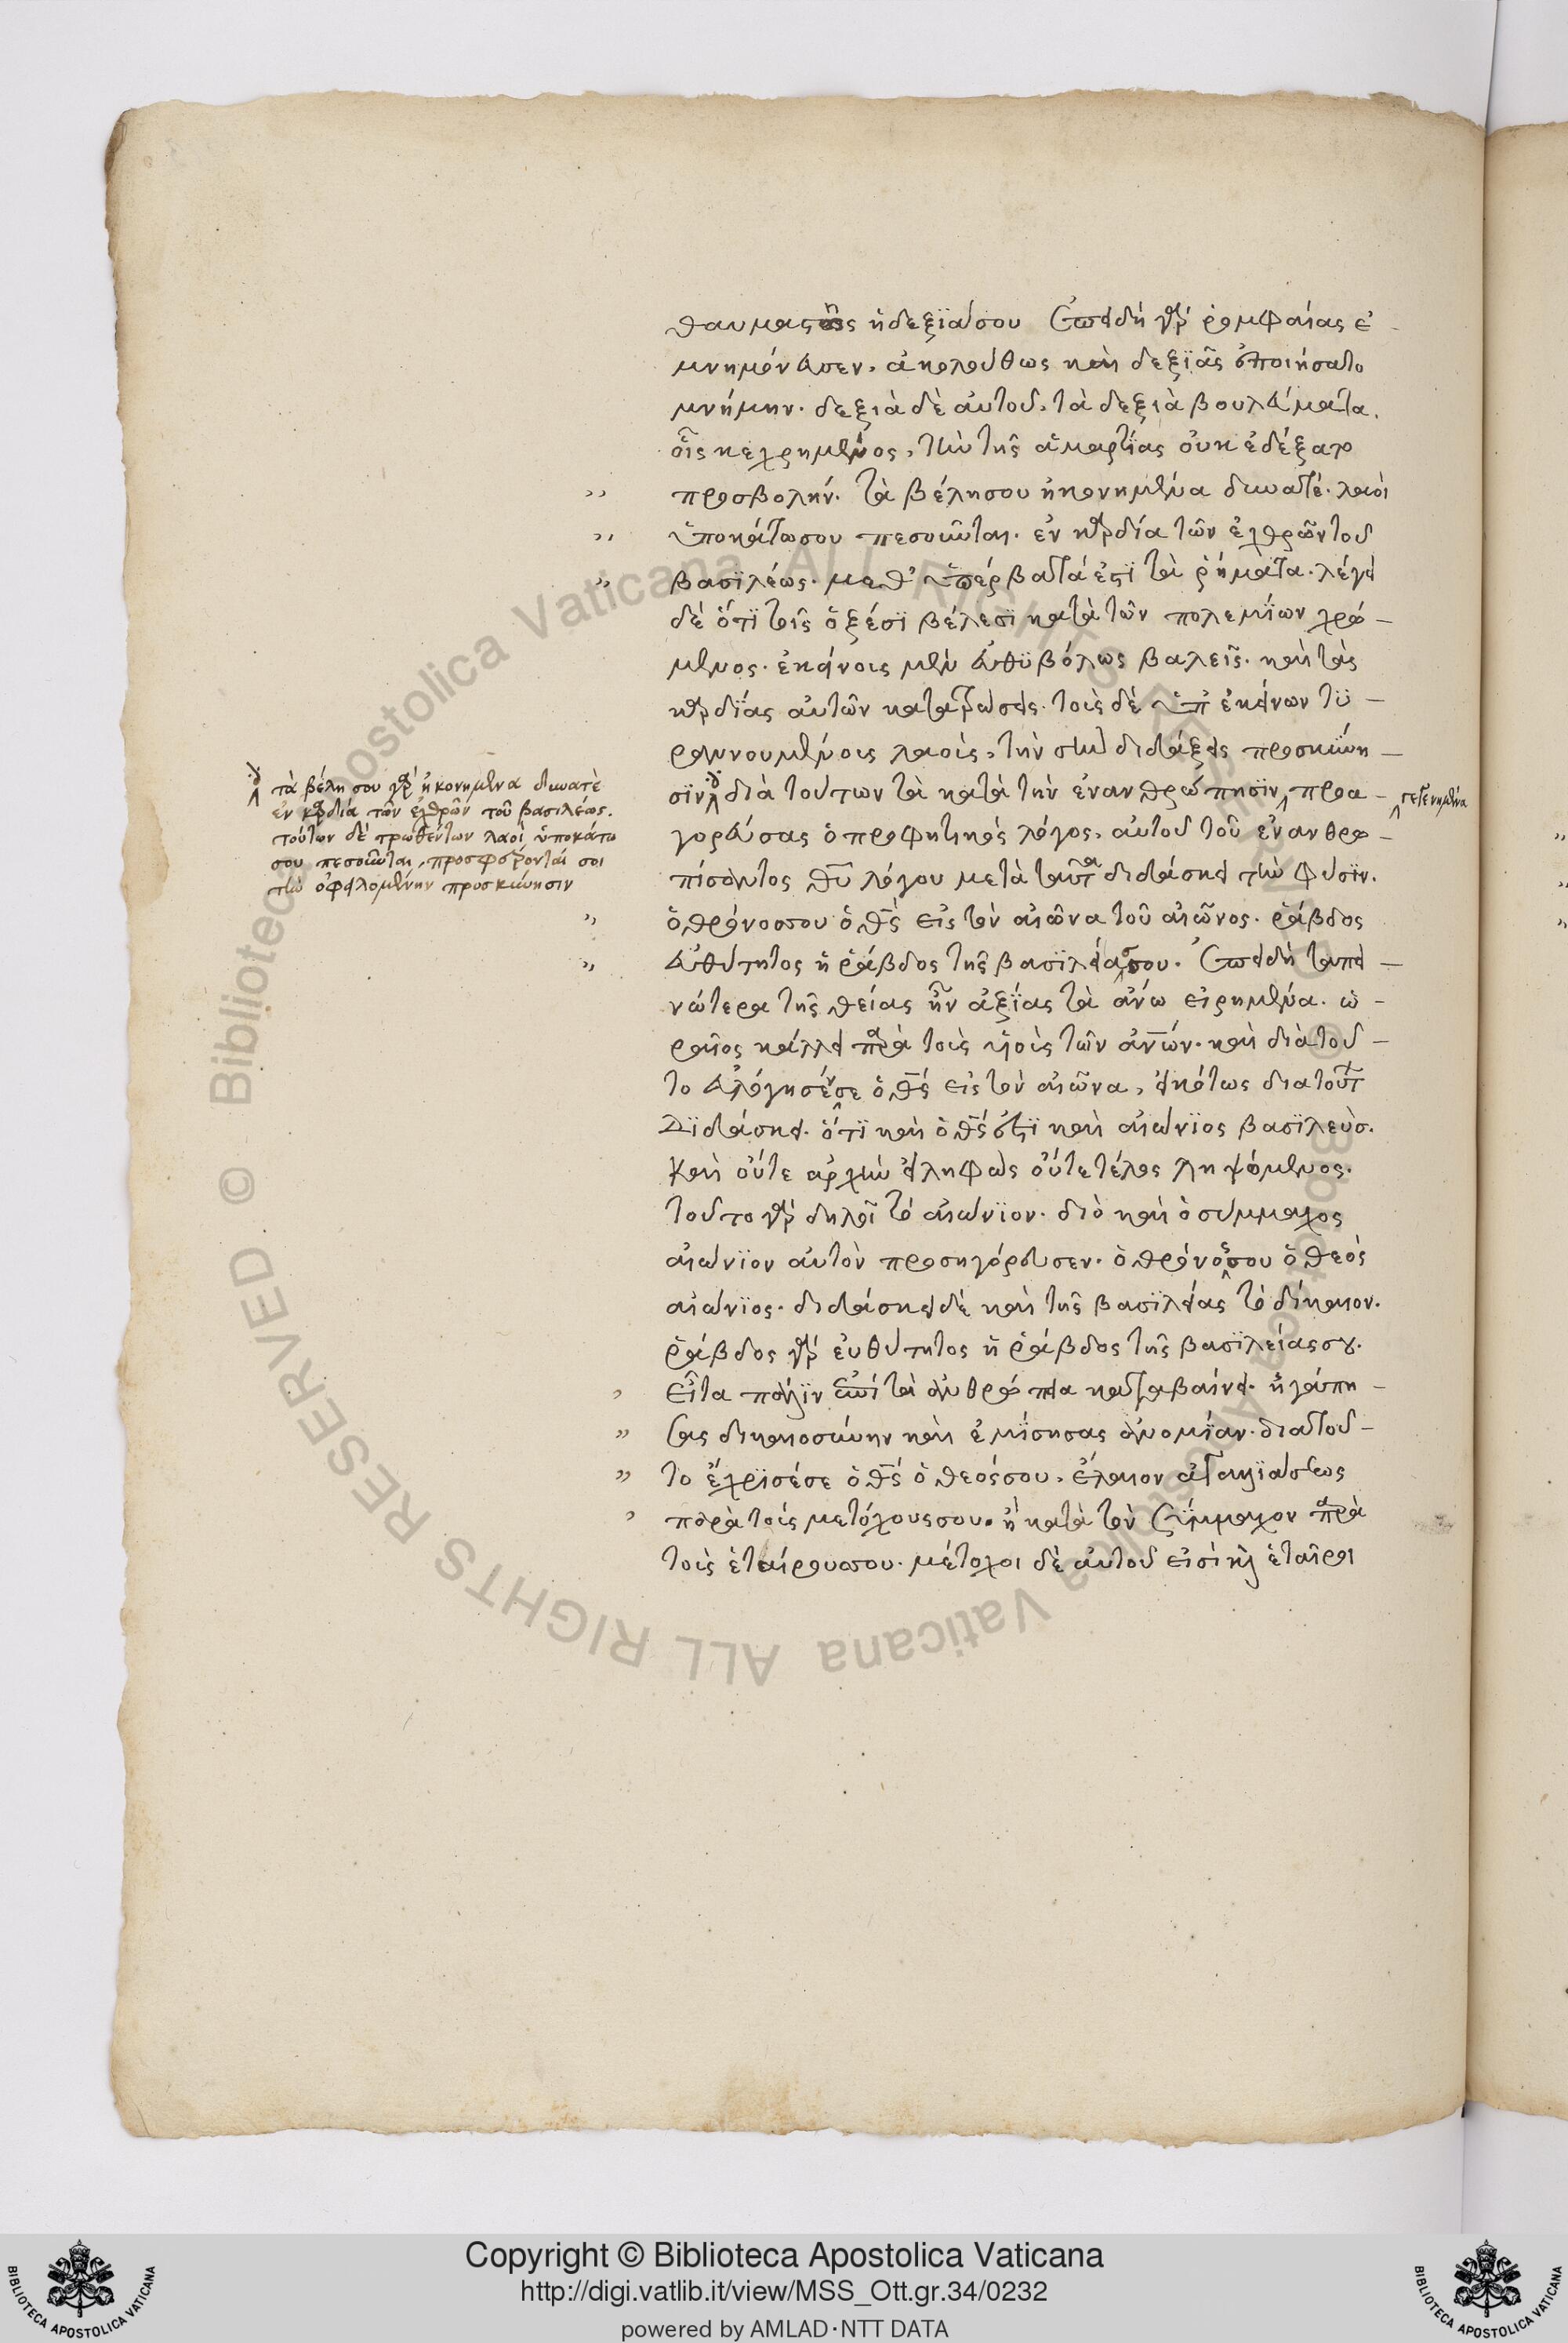 θαυμαστῶς ἡ δεξϊά σου Ἐπειδὴ γὰρ ῥομφαίας ἐ-
μνημόνευσεν, ἀκολούθως καὶ δεξϊᾶς ἐποιήσατο
μνήμην. δεξιὰ δὲ αὐτοῦ, τὰ δεξιὰ βουλεύματα.
οἷς κεχρημένος, τὴν τῆς ἁμαρτίας οὐκ ἐδέξατο
προσβολήν. τὰ βέλη σου ἠκονημένα δυνατέ. λαοὶ
ὑποκάτω σου πεσοῦνται. ἐν καρδία τῶν ἐχθρῶν τοῦ
βασϊλέως. μεθ' ὑπέρβατά ἐστϊ τὰ ῥήματα. λέγει
δὲ ὅτϊ τοῖς ὀξέσϊ βέλεσϊ κατὰ τῶν πολεμΐων χρώ-
μενος. ἐκείνοις μὲν εὐθϋβόλως βαλεῖς. καὶ τὰς
καρδΐας αὐτῶν κατατρώσεις. τοὺς δὲ ὑπ' ἐκείνων τϋ-
ραννουμένους λαοὺς, τὴν σὴν διδάξεις προσκύνη-
σϊν, διὰ τούτων τὰ κατὰ τὴν ἐνανθρώπησϊν προα-
γεγενημένα
γορεύσας ὁ προφητικὸς λόγος, αὐτοῦ τοῦ ἐνανθρω-
πίσαντος θυ λόγου μετὰ ταῦτα διδάσκει τὴν φύσϊν.
ὁ θρόνος σου ὁ θς εἰς τὸν αἰῶνα τοῦ αἰῶνος. ῥάβδος
εὐθύτητος ἡ ῥάβδος τῆς βασϊλείας σου. Ἐπειδὴ ταπει-
νώτερα τῆς θείας ἦν ἀξΐας τὰ ἄνω εἰρημένα. ὡ-
ραῖος κάλλει παρὰ τοὺς υἱοὺς τῶν ανων. καὶ διὰ τοῦ-
το εὐλόγησέν σε ὁ θς εἰς τὸν αἰῶνα, εἰκότως διὰ τούτων
Δϊδάσκει. ὅτϊ καὶ ὁ θς ἐστϊ καὶ αἰώνϊος βασϊλεὺσ.
Καὶ οὔτε ἀρχὴν εἰληφὼς οὔτε τέλος ληψόμενος.
τοῦτο γὰρ δηλοῖ τὸ αἰώνϊον. διὸ καὶ ὁ σύμμαχος
αἰώνϊον αὐτὸν προσηγόρευσεν. ὁ θρόνος σου ὁ θεὸς
αἰώνϊος. διδάσκει δὲ καὶ τῆς βασϊλείας τὸ δίκαιον.
ῥάβδος γὰρ εὐθύτητος ἡ ῥάβδος τῆς βασϊλείας σου.
Εἶτα πάλϊν ἐπὶ τὰ ἀνθρώπεια καταβαίνει. ἠγάπη-
σας δικαιοσύνην καὶ ἐμΐσησας ἀνομΐαν. διατοῦ-
το ἔχρϊσέ σε ὁ θς ὁ θεός σου, ἔλαιον ἀγαλλϊάσεως
παρὰ τοὺς μετόχους σου. ἢ κατὰ τὸν Σύμμαχον παρὰ
τοὺς ἑταίρους σου. μέτοχοι δὲ αὐτοῦ εἰσὶ καὶ ἑταῖροι
τὰ βέλη σου γὰρ ἠκονημένα δυνατὲ
ἐν καρδία τῶν ἐχθρῶν τοῦ βασιλέως.
τούτων δὲ τρωθέντων λαοὶ ὑποκάτω
σου πεσοῦνται, προσφέροντάι σοι
τὴν ὀφειλομένην προσκύνησιν
Copyright © Biblioteca Apostolica Vaticana
http://digi.vatlib.it/view/MSS_Ott.gr.34/0232
powered by AMLAD·NTT DATA
© Biblioteca Apostolica Vaticana ALL RIGHTS RESERVED. © Biblioteca Apostolica Vaticana ALL RIGHTS RESERVED.
BIBLIOTECA APOSTOLICA VATICANA
BIBLIOTECA APOSTOLICA VATICANA